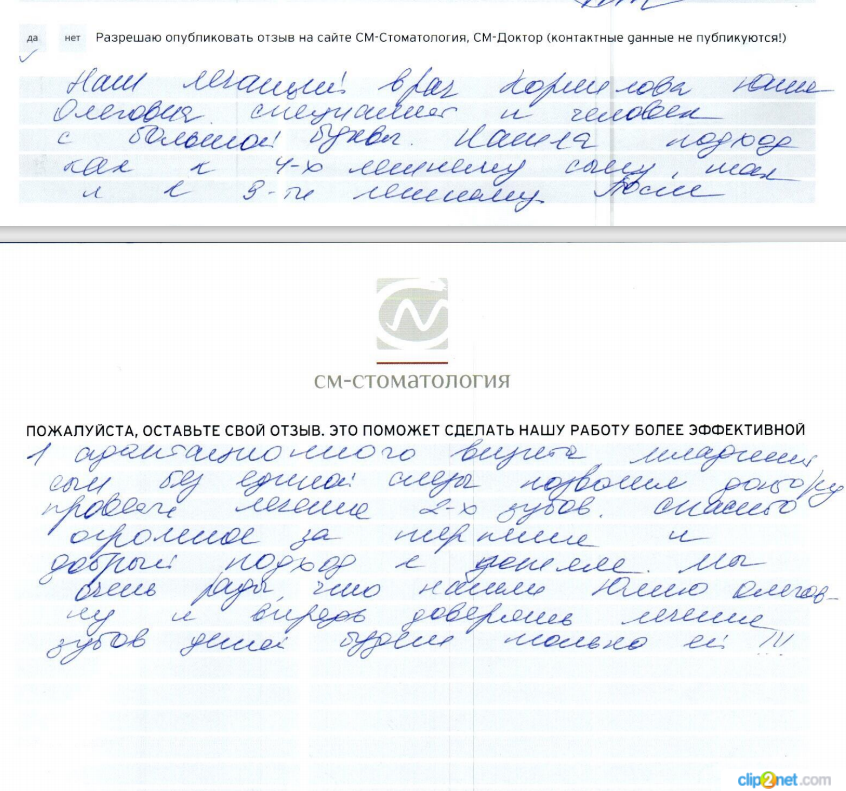 да нет Разрешаю опубликовать отзыв на сайте СМ-Стоматология, СМ-Доктор (контактные данные не публикуются!)
Наш лечащий врач Корнилова Юлия
Олеговна специалист и человек
с большой буквы. Нашла подход
как к 4-х летнему сыну, так
и к 9-ти летнему. После
СМ-СТОМАТОЛОГИЯ
ПОЖАЛУЙСТА, ОСТАВЬТЕ СВОЙ ОТЗЫВ. ЭТО ПОМОЖЕТ СДЕЛАТЬ НАШУ РАБОТУ БОЛЕЕ ЭФФЕКТИВНОЙ
1 адаптационного визита младший
сын без единой слезы позволил доктору
провести лечение 2-х зубов. Спасибо
огромное за терпение и
добрый подход к детям. Мы
очень рады, что нашли Юлию Олегов-
ну и впредь доверять лечение
зубов детей будем только ей !!!
clip2net.com